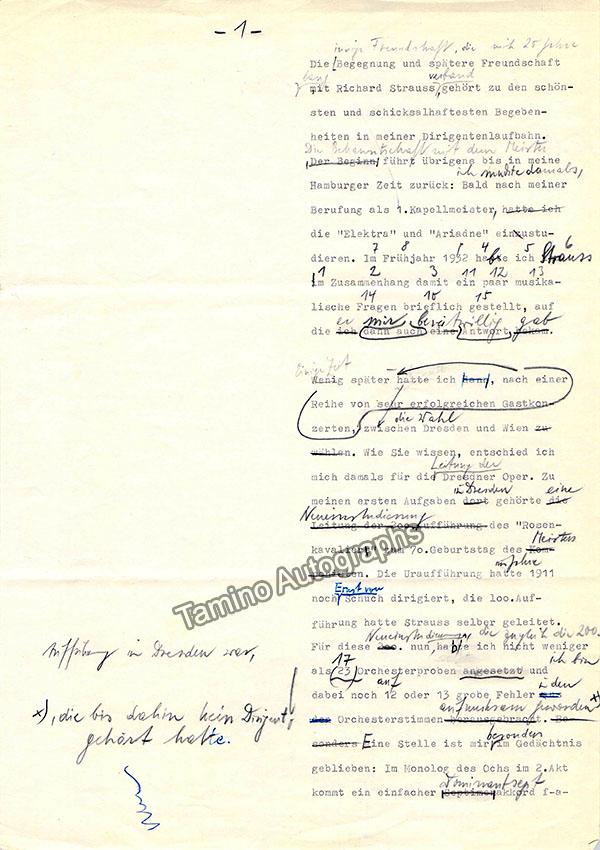 - 1 -
innige Freundschaft, die mich 25 Jahre
Die Begegnung und spätere Freundschaft
lang verband
mit Richard Strauss, gehört zu den schön-
sten und schicksalhaftesten Begeben-
heiten in meiner Dirigentenlaufbahn.
Die Bekanntschaft mit dem Meister
Der Beginn führt übrigens bis in meine
ich musste damals,
Hamburger Zeit zurück: Bald nach meiner
Berufung als 1.Kapellmeister, hatte ich
die "Elektra" und "Ariadne" einzustu-
7 8 1 4 5 6
dieren. Im Frühjahr 1932 habe ich Strauss
1 2 3 11 12 13
im Zusammenhang damit ein paar musika-
14 16 15
lische Fragen brieflich gestellt, auf
er mir bereitwillig gab
die ich dann auch eine Antwort bekam.
Wenig später hatte ich dann, nach einer
Reihe von sehr erfolgreichen Gastkon-
die Wahl
zerten, zwischen Dresden und Wien zu
wählen. Wie Sie wissen, entschied ich
Leitung der
mich damals für die Dresdner Oper. Zu
in Dresden eine
meinen ersten Aufgaben dort gehörte die
Neueinstudierung
Leitung der 200.Aufführung des "Rosen-
Meisters
kavalier" zum 70.Geburtstag des Kom-
ponisten. Die Uraufführung hatte 1911
Ernst von
noch Schuch dirigiert, die 100.Auf-
führung hatte Strauss selber geleitet.
Neueinstudierung, die zugleich die 200.
Für diese 200. nun, habe ich nicht weniger
Aufführung in Dresden war,
17 ich bin
als 23 Orchesterproben angesetzt und
auf in den
dabei noch 12 oder 13 grobe Fehler aus
aufmerksam geworden x)
den Orchesterstimmen herausgebracht. Be-
x), die bis dahin kein Dirigent
gehört hatte.
besonders
sonders Eine Stelle ist mir im Gedächtnis
geblieben: Im Monolog des Ochs im 2.Akt
Dominantsept
kommt ein einfacher Septimenakkord f-a-
Tamino Autographs